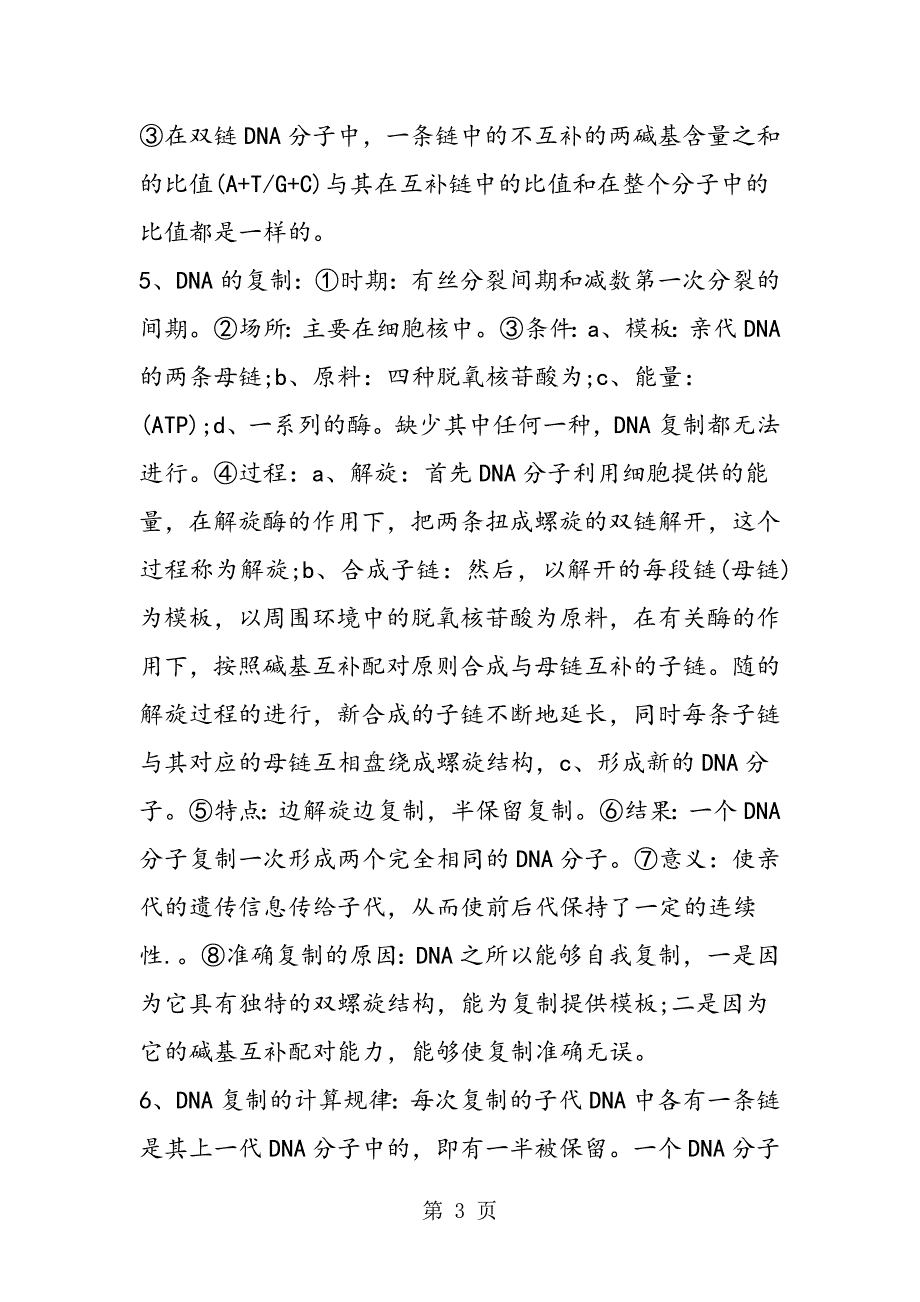 ③在双链DNA分子中，一条链中的不互补的两碱基含量之和
的比值(A+T/G+C)与其在互补链中的比值和在整个分子中的
比值都是一样的。
5、DNA的复制：①时期：有丝分裂间期和减数第一次分裂的
间期。②场所：主要在细胞核中。③条件：a、模板：亲代DNA
的两条母链;b、原料：四种脱氧核苷酸为;c、能量：
(ATP);d、一系列的酶。缺少其中任何一种，DNA复制都无法
进行。④过程：a、解旋：首先DNA分子利用细胞提供的能
量，在解旋酶的作用下，把两条扭成螺旋的双链解开，这个
过程称为解旋;b、合成子链：然后，以解开的每段链(母链)
为模板，以周围环境中的脱氧核苷酸为原料，在有关酶的作
用下，按照碱基互补配对原则合成与母链互补的子链。随的
解旋过程的进行，新合成的子链不断地延长，同时每条子链
与其对应的母链互相盘绕成螺旋结构，c、形成新的DNA分
子。⑤特点：边解旋边复制，半保留复制。⑥结果：一个DNA
分子复制一次形成两个完全相同的DNA分子。⑦意义：使亲
代的遗传信息传给子代，从而使前后代保持了一定的连续
性.。⑧准确复制的原因：DNA之所以能够自我复制，一是因
为它具有独特的双螺旋结构，能为复制提供模板;二是因为
它的碱基互补配对能力，能够使复制准确无误。
6、DNA复制的计算规律：每次复制的子代DNA中各有一条链
是其上一代DNA分子中的，即有一半被保留。一个DNA分子
第 3 页